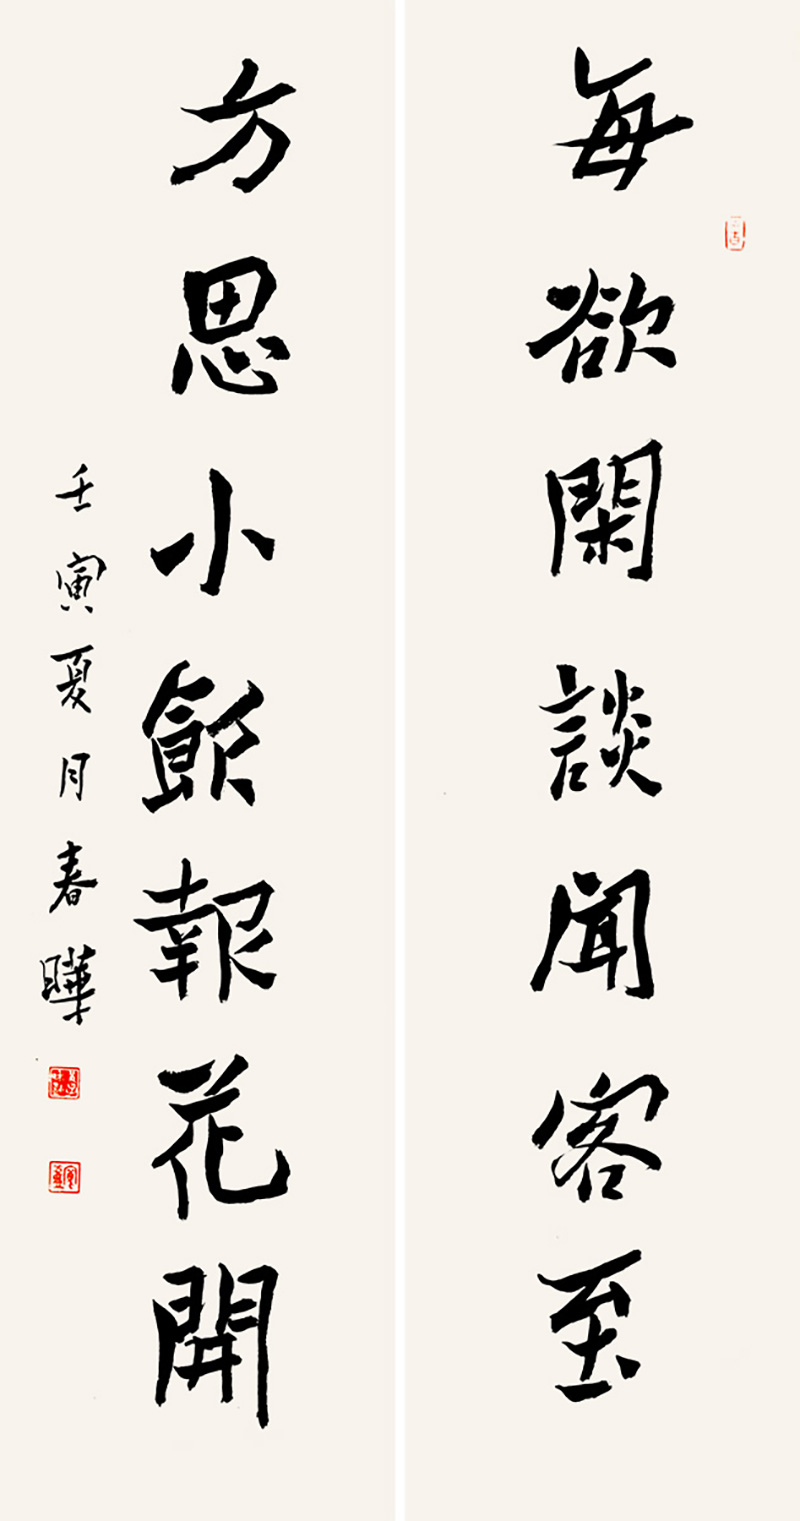 每欲閑談聞客至
方思小飲報花開
壬寅夏月春曄